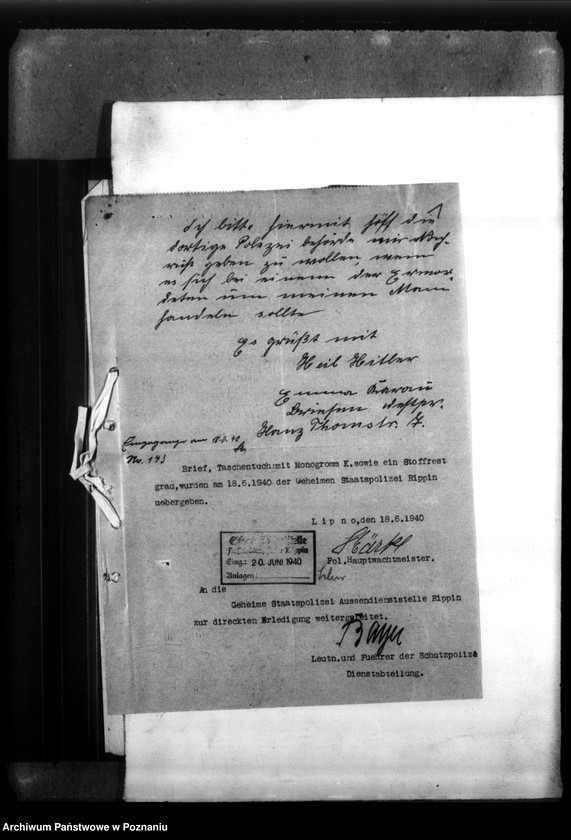 Ich bitte hiermit höfl die
dortige Polizei behörde mir Nach-
richt geben zu wollen, wenn
es sich bei einem der Ermor-
deten um meinen Mann
handeln sollte
Es grüßt mit
Heil Hitler
Emma Karau
Briesen Westpr.
Hanz Thomstr. 7.
Eingegangen am
No. 143
Brief, Taschentuch mit Monogramm K. sowie ein Stoffrest
grau, wurden am 18.6.1940 der Geheimen Staatspolizei Rippin
uebergeben.
L i p n o, den 18.6.1940
Härtel
Pol. Hauptwachtmeister.
Eing.: 20. JUNI 1940
Anlagen:
An die
Geheime Staatspolizei Aussendienststelle Rippin
zur direkten Erledigung weitergeleitet.
Bayer
Leutn. und Fuehrer der Schutzpolize
Dienstabteilung.
Archiwum Państwowe w Poznaniu